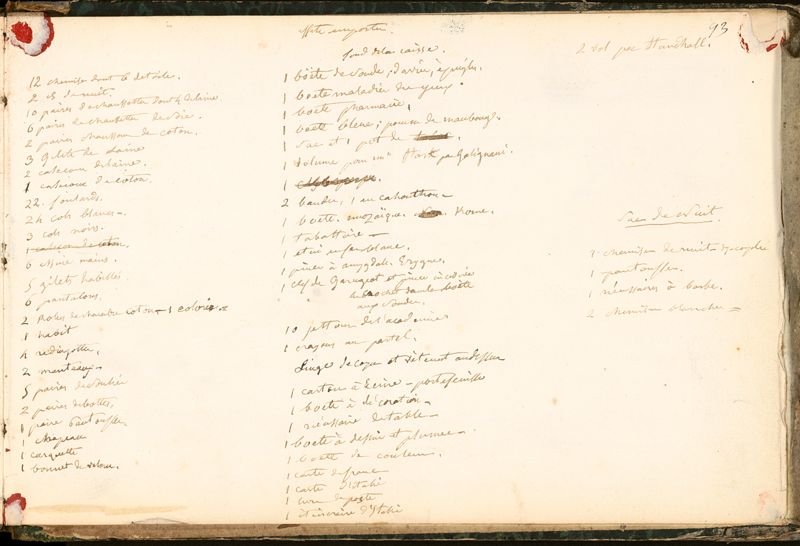 93
Effets emportés
12 chemises dont 6 de toile.
2 id de nuit.
10 paires de chaussettes dont 4 de laine
6 paires de chaussettes de soie.
2 paires chaussons de coton.
3 gilets de laine
2 caleçons de laine.
1 caleçon de coton.
22. foulards.
24 cols blancs
3 cols noirs.
1 caleçon de coton.
6 essuie mains.
5 gilets habillés
6 pantalons.
2 Robes de chambre coton - 1 coloriée
1 habit
4 redingottes.
2 manteaux
5 paires de souliers
2 paires de bottes.
1 paire pantouffles
1 chapeau
1 casquette
1 bonnet de velours.
fond de la caisse.
1 boëte de soude, d'avrie, à épingles.
1 boete maladie des yeux.
1 boete pharmacie,
1 boete bleue; pomme de
1 sac et 1 pot de
1 volume par Mme Stark par Galignani.
1
2 bandes, 1 en cahouthou
1 boete. mozaïque. Rome.
1 tabattière
1 étui en fer blanc.
1 pince à
1 clef de Garengeot et pince incisives
10 jettons de l'académie
1 crayons au pastel.
Linge de corps et vêtement au dessus
1 carton à Écrire - portefeuille
1 boete à décoration
1 nécessaire de table
1 boete à dessin et plumes
1 boette de couleurs.
1 carte de france
1 carte d'Italie
1 livre de poste
1 itinéraire d'Italie
2 vol par Standhall.
Sac de Nuit.
chemises de nuit
1 pantouffles.
1 nécessaires à barbe.
2 chemises blanches